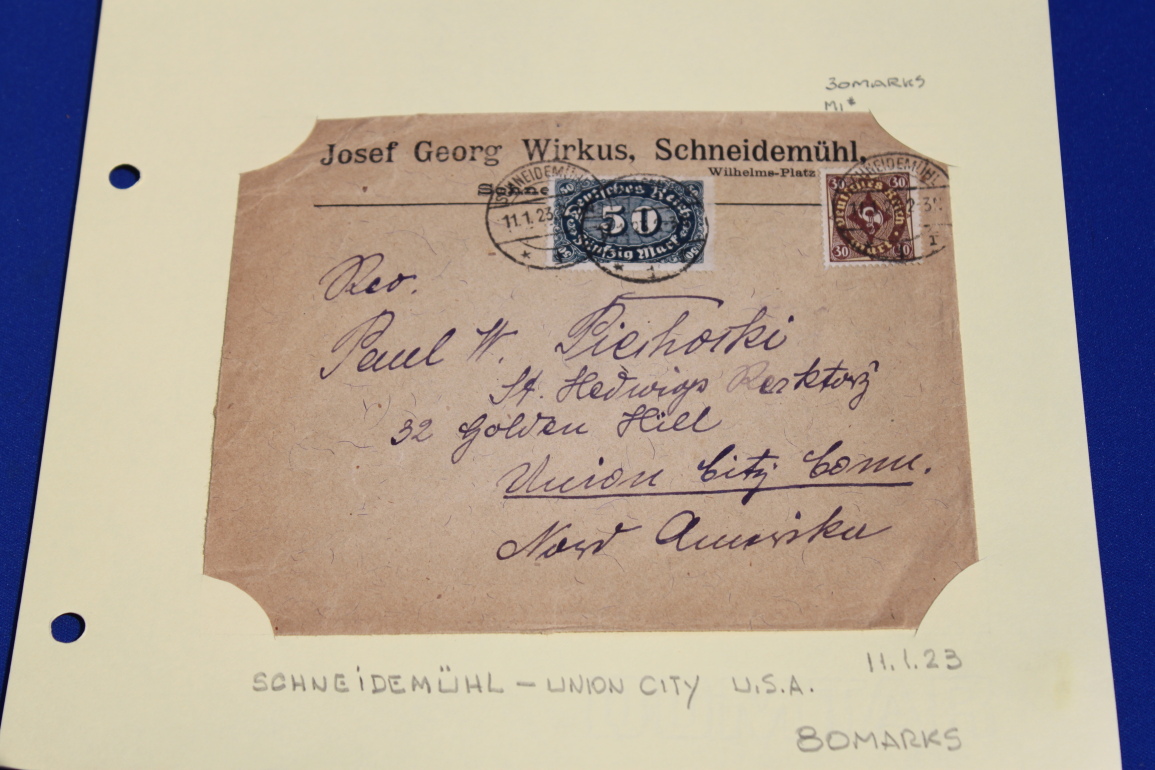 30MARKS
MI*
Josef Georg Wirkus, Schneidemühl,
Wilhelms-Platz
Schne
SCHNEIDEMÜHL
11.1.23
50 50
Deutsches Reich
50
Fünfzig Mark
50 50
30 30
Deutsches Reich
Mark
30 30
SCHNEIDEMÜHL
2-3
Rev.
Paul W. Piechoski
St. Hedwigs Recktorÿ
32 Golden Hill
Union Citÿ Conn.
Nord Amerika
11.1.23
SCHNEIDEMÜHL - UNION CITY U.S.A.
80MARKS